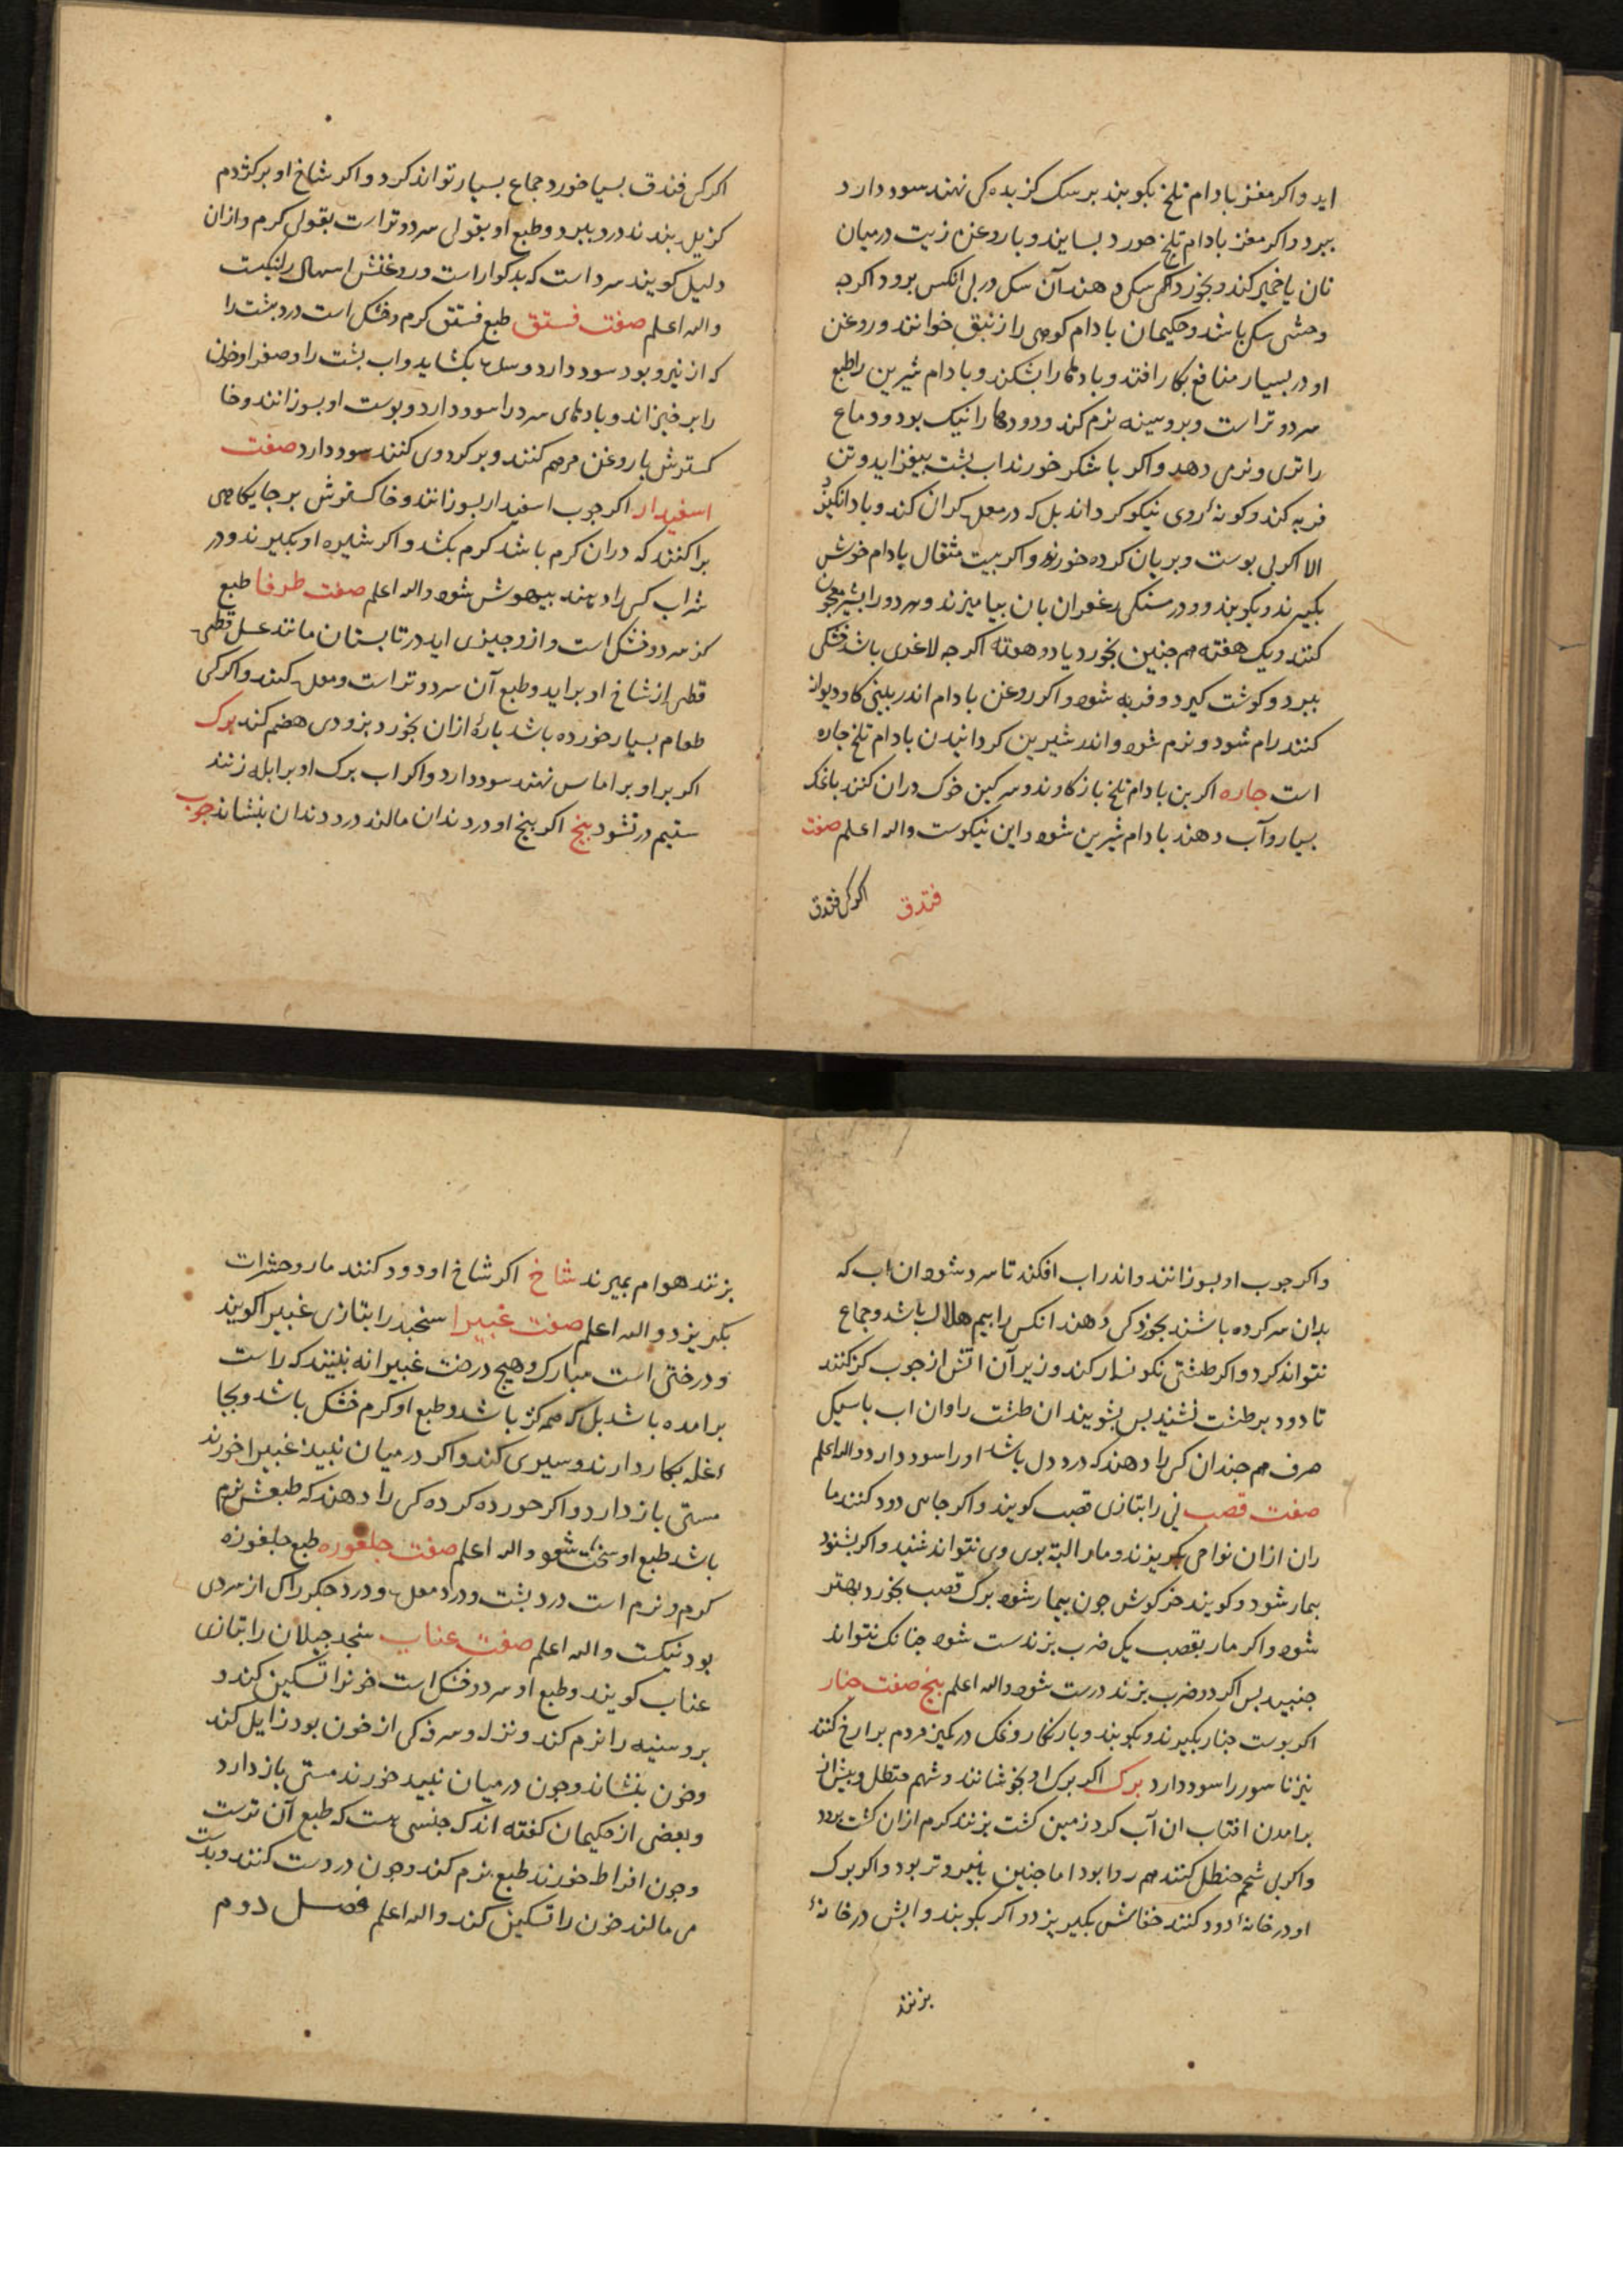 اید واکر مغز بادام تلخ بکوبند بر سک کزیده کی نهند سود دارد
ببرد واکر مغز بادام تلخ خورد بسایند و با روغن زیت درمیان
نان یا خمیر کند و بخورد سکی دهند آن سک در پی انکس برود اکرچه
وحشی سک باشد و حکیمان بادام کوهی را زنبق خوانند و روغن
او در بسیار منافع بکار افتد و بادها را بشکند و بادام شیرین را طبع
سرد و تر است و بر و سینه نرم کند و درودها را نیک بود و دماغ
را تری و نرمی دهد واکر با شکر خورند اب پشت بیفزاید و تن
فربه کند و کونهٔ روی نیکو کرداند بل که در معده کران کند و باد انکیزد
الا اکر بی پوست و بریان کرده خورند واکر بیست مثقال بادام خوش
بکیرند و بکوبند و درمسنکی زعفران بان بیامیزند و هر دو را بشیر معجون
کنند و یک هفته هم جنین بخورد یا دو هفته اکر جه لاغری باشد خشکی
ببرد و کوشت کیرد و فربه شود واکر روغن بادام اندر بینی کاو دیوانه
کنند رام شود و نرم شود و اندر شیرین کردانیدن بادام تلخ جاره
است جاره اکر بن بادام تلخ باز کاوند و سرکین خوک دران کنند با نمک
بسیار و آب دهند بادام شیرین شود و این نیکوست والله اعلم صفت
فندق اکر کس فندق
اکر کس فندق بسیا خورد جماع بسیار تواند کرد واکر شاخ او بر کژدم
کزیل بندند درد ببرد و طبع او بقولی سرد و تر است بقولی کرم وازان
دلیل کویند سرد است که بدکوار است و روغنش اسهال را نیکست
والله اعلم صفت فستق طبع فستق کرم و خشک است درد پشت را
که از نیرو بود سود دارد و سده بکشاید واب پشت را و صفرا و خون
را برخیزاند و بادهای سرد را سود دارد و پوست او بسوزانند و خا
کسترش با روغن مرهم کنند و بر کردوی کنند سود دارد صفت
اسفیدار اکر جوب اسفیدار بسوزانند و خاکسترش بر جایکاهی
پراکنند که دران کرم باشد کرم بکشد واکر شیره او بکیرند و در
شراب کس را دهند بیهوش شود والله اعلم صفت طرفا طبع
کز سرد و خشک است و از و جیزی اید در تابستان مانند عسل قطره
قطره از شاخ او براید و طبع آن سرد و تر است و معده کند واکر کی
طعام بسیار خورده باشد پارهٔ ازان بخورد بزودی هضم کند برک
اکر براو بر اماس نهند سود دارد واکر اب برک او بر ابله زنند
ستیم در نشود بیخ اکر بیخ او در دندان مالند درد دندان بنشاند جوب
واکر جوب او بسوزانند و اندر اب افکند تا سرد شود ان اب که
بدان سرکرده باشند بخورد کی دهند انکس را بیم هلاک باشد و جماع
نتواند کرد واکر طشتی نکونسار کند و زیر آن اتش از جوب کز کنند
تا دود بر طشت نشیند پس بشویند ان طشت را وان اب با سیکی
صرف هم جندان کس را دهند که درد دل باشد او را سود دارد والله اعلم
صفت قصب نی را بتازی قصب کویند واکر جایی دود کنند ما
ران ازان نواحی بکریزند و مار البته بوی وی نتواند شنید واکر بشنود
بیمار شود و کویند خرکوش جون بیمار شود برک قصب بخورد بهتر
شود واکر مار بقصب یک ضرب بزند سست شود جنانک نتواند
جنبید پس اکر دو ضرب بزند درست شود والله اعلم بیخ صفت جنار
اکر پوست جنار بکیرند و بکوبند و با زنکار و نمک در کمیز مردم بر ارخ کنند
نیز ناسور را سود دارد برک اکر برک او بخوشانند و شهم حنظل و پیش از
برامدن افتاب ان آب کرد زمین کشت بزنند کرم ازان کشت برود
واکر بی شحم حنظل کنند هم روا بود اما جنین بانیرو تر بود واکر برک
او در خانهٔ دود کنند خفاش بکریزد واکر بکوبند و ابش در خانهٔ
بزنند
بزنند هوام بمیرند شاخ اکر شاخ او دود کنند مار و حشرات
بکریزد والله اعلم صفت غبیرا سنجد را بتازی غبیرا کویند
و درختی است مبارک و هیچ درخت غبیرا نه بینند که راست
برامده باشد بل که همه کژ باشد و طبع او کرم خشک باشد و بجا
اغله بکار دارند و سیری کند واکر درمیان نبیذ غبیرا خورند
مستی باز دارد واکر خورده کرده کس را دهند که طبعش نرم
باشد طبع او سخت شود والله اعلم صفت جلغوزه طبع جلغوزه
کرم و نرم است درد پشت و درد معده و درد جکر را که از سردی
بود نیکست والله اعلم صفت عناب سنجد جیلان را بتازی
عناب کویند و طبع او سرد و خشک است خونرا تسکین کند و
بر و سینه را نرم کند و نزله و سرفه کی از خون بود زایل کند
و خون بنشاند و جون درمیان نبید خورند مستی باز دارد
و بعضی از حکیمان کفته اند که جنسی هست که طبع آن ترست
و جون افراط خورند طبع نرم کند و جون در دست کنند و بدست
می مالند خون را تسکین کند والله اعلم فصل دوم